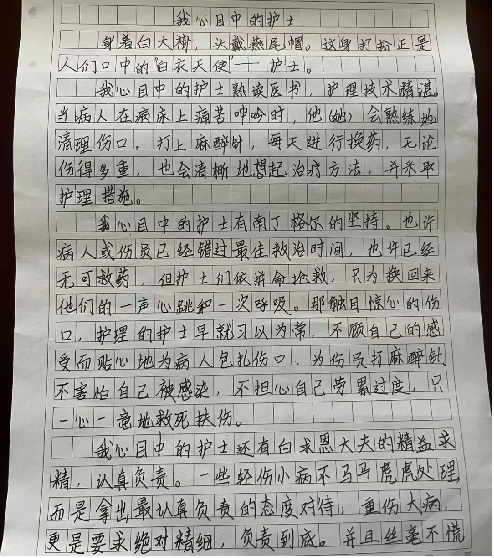 我心目中的护士
身着白大褂，头戴燕尾帽。这身打扮正是
人们口中的“白衣天使”——护士。
我心目中的护士熟读医书，护理技术精湛。
当病人在病床上痛苦呻吟时，他（她）会熟练地
清理伤口，打上麻醉针，每天进行换药，无论
伤得多重，也会清晰地想起治疗方法，并采取
护理措施。
我心目中的护士有南丁格尔的坚持。也许
病人或伤员已经错过最佳救治时间，也许已经
无可救药，但护士们依然拼命抢救，只为换回来
他们的一声心跳和一次呼吸。那触目惊心的伤
口，护理的护士早就习以为常，不顾自己的感
受而贴心地为病人包扎伤口，为伤员打麻醉针
不害怕自己被感染，不担心自己劳累过度，只
一心一意地救死扶伤。
我心目中的护士还有白求恩大夫的精益求
精，认真负责。一些轻伤小病不马马虎虎处理
而是拿出最认真负责的态度对待；重伤大病，
更是要求绝对精细，负责到底。并且丝毫不慌